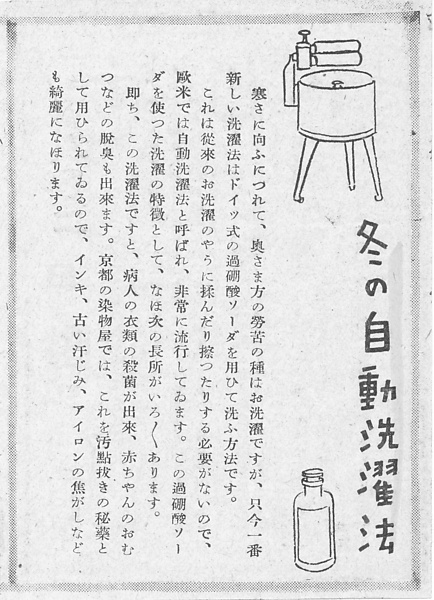 冬の自動洗濯法
寒さに向ふにつれて、奥さま方の勞苦の種はお洗濯ですが、只今一番
新しい洗濯法はドイッ式の過硼酸ソーダを用ひて洗ふ方法です。
これは從來のお洗濯のやうに揉んだり擦つたりする必要がないので、
歐米では自動洗濯法と呼ばれ、非常に流行してゐます。この過硼酸ソー
ダを使つた洗濯の特徴として、なほ次の長所がいろ〱あります。
即ち、この洗濯法ですと、病人の衣類の殺菌が出來、赤ちやんのおむ
つなどの脱臭も出來ます。京都の染物屋では、これを汚點拔きの秘藥と
して用ひられてゐるので、インキ、古い汗じみ、アイロンの焦がしなど
も綺麗になほります。